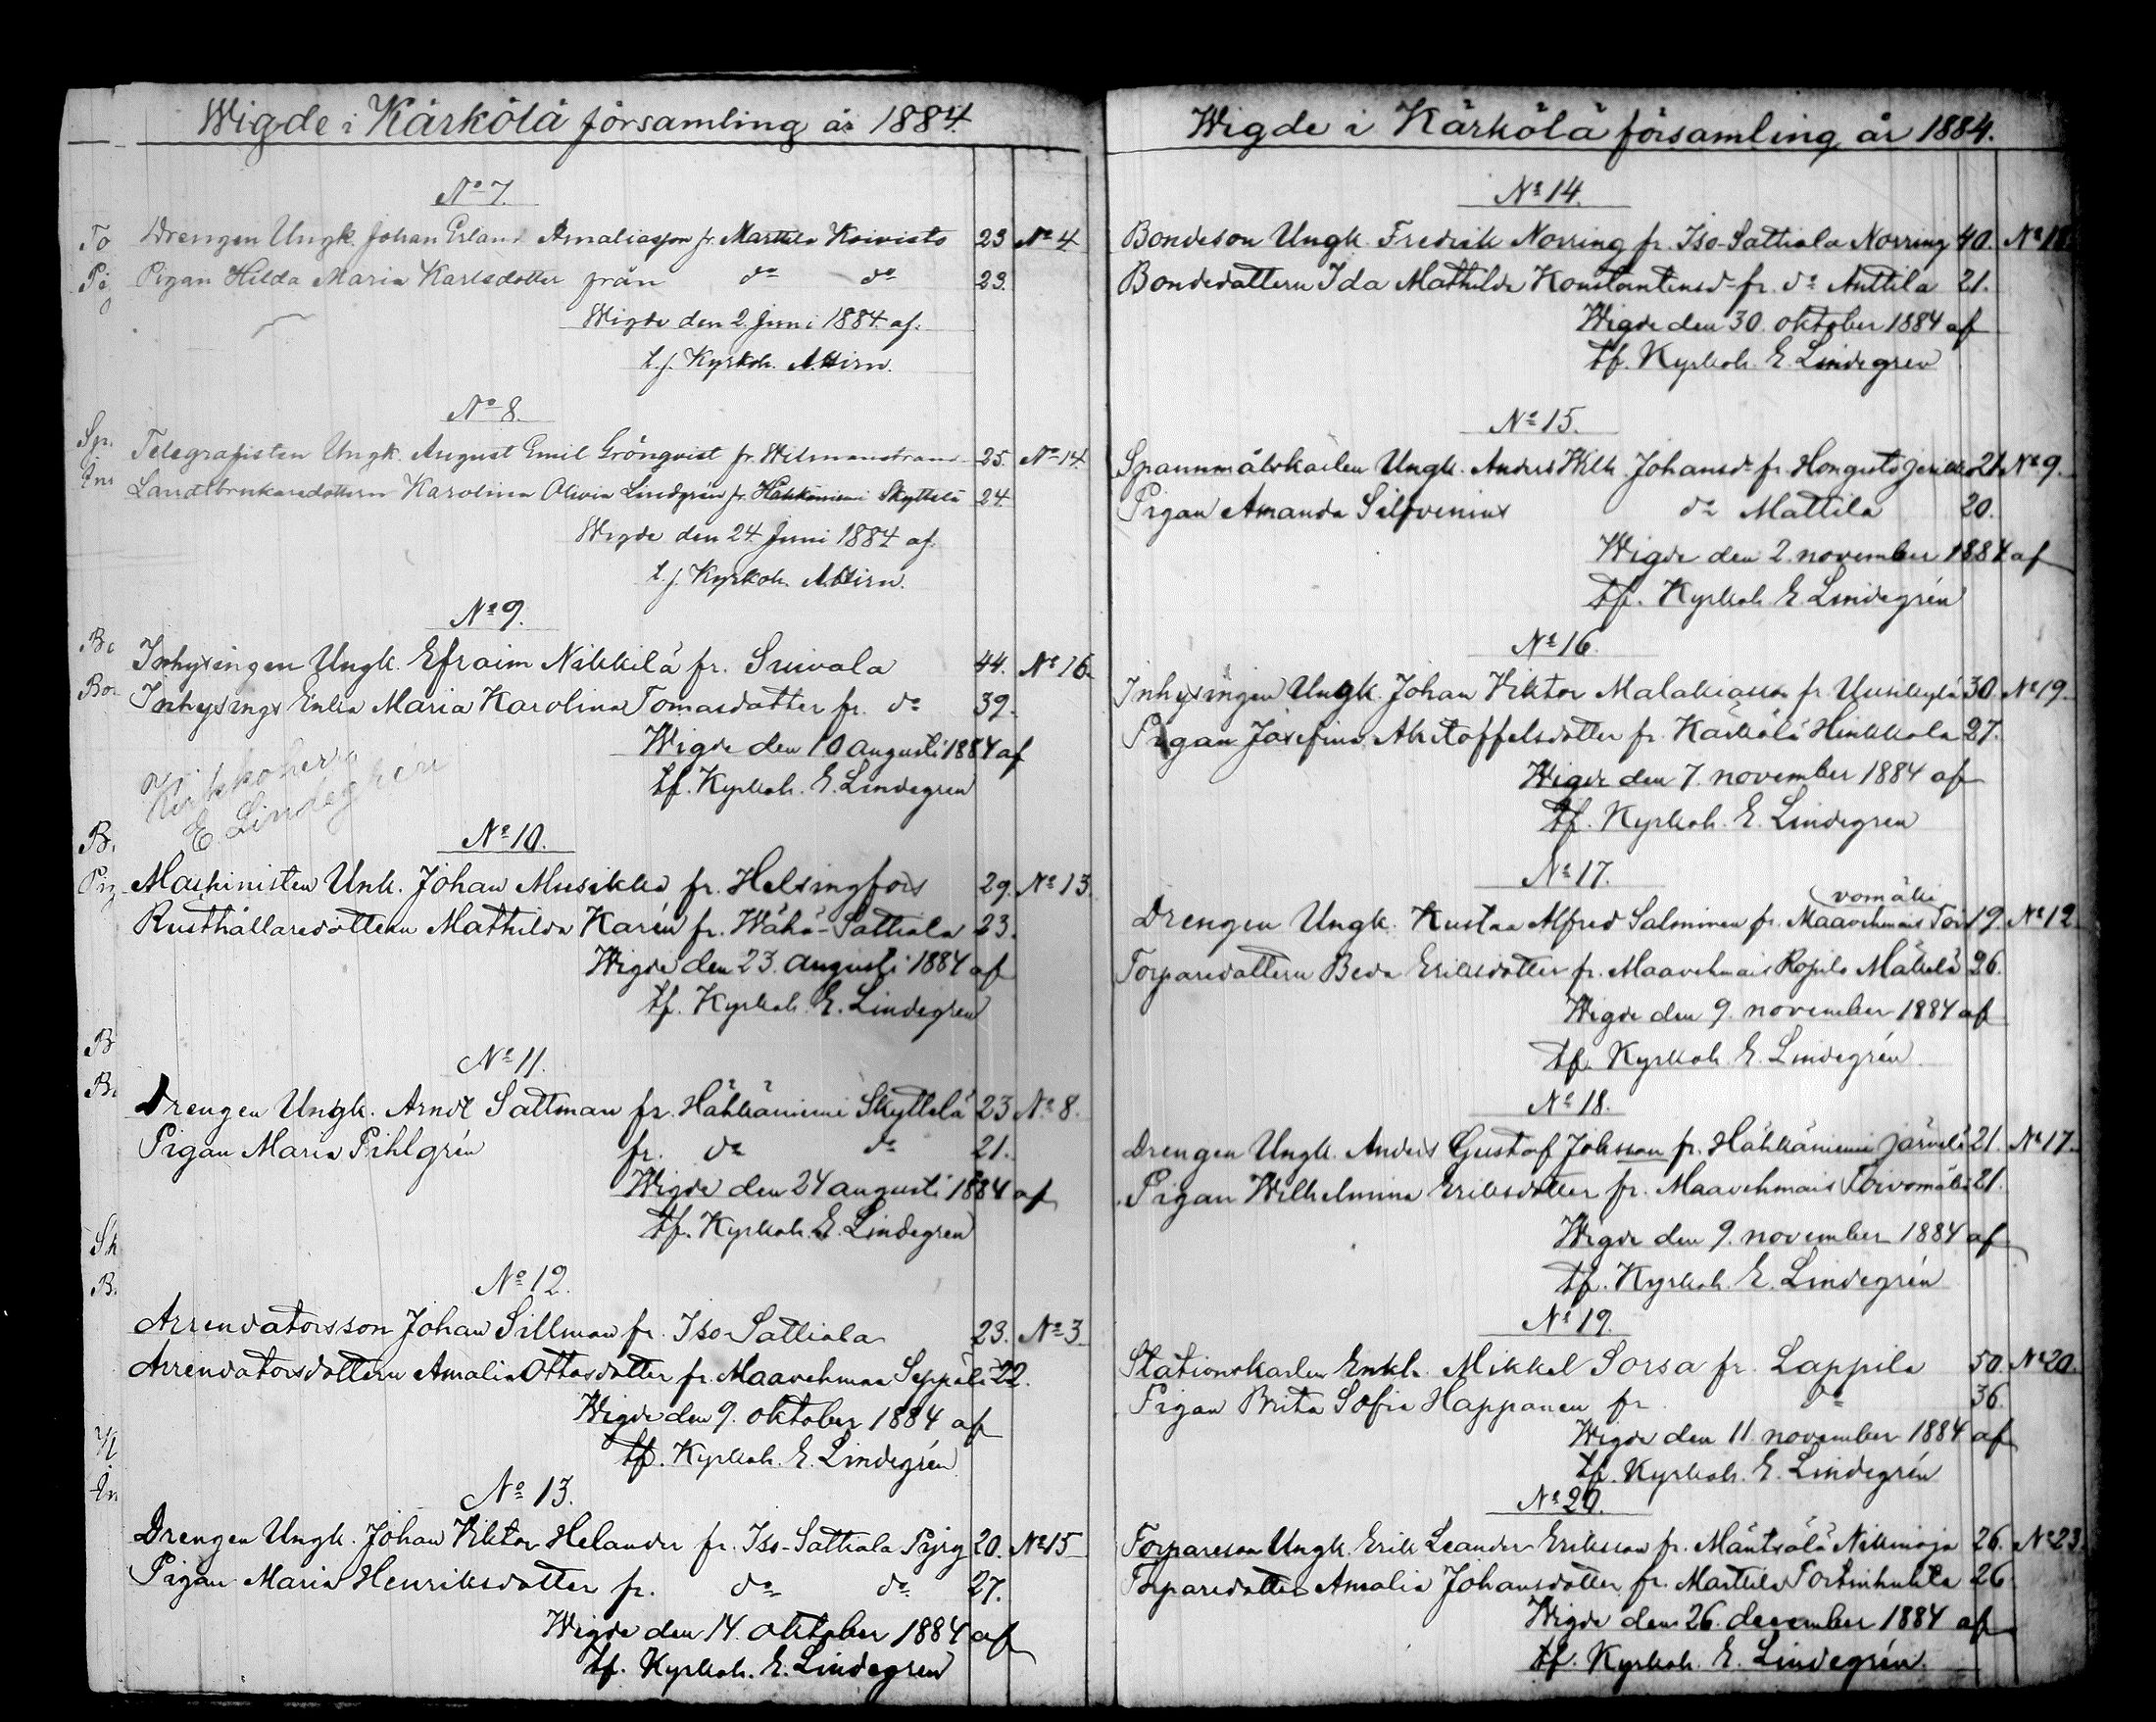 Wigde i Kärkölä församling år 1884.
No 7.
Drengen Ungk. Johan Erland Amaliasson fr. Marttila Koivisto 23 No 4
Pigan Hilda Maria Karlsdotter från do do 23.
Wigde den 2. Juni 1884 af.
t.f. Kyrkoh. A. Hirn.
No 8.
Telegrafisten Ungk. August Emil Grönqvist fr. Wilmanstrand 25. No 14
Landtbrukaredottern Karolina Olivia Lindgrén fr. Hähkäniemi Skyttelä 24.
Wigde den 24. Juni 1884 af.
t.f. Kyrkoh. A. Hirn.
No 9.
Inhysingen Ungk. Efraim Nikkilä fr. Suivala 44. No 16.
Inhysings Enka Maria Karolina Tomasdotter fr. do 39.
Wigde den 10 augusti 1884 af
tf. Kyrkoh. E. Lindegren
Kirkkoherra
E Lindegren
No 10.
Maskinisten Unk. Johan Musikka fr. Helsingfors 29. No 13.
Rusthållaredottern Mathilda Karén fr. Wähä-Sattiala 23.
Wigde den 23. augusti 1884 af
tf. Kyrkoh. E. Lindegren
No 11.
Drengen Ungk. Arndt Sattman fr. Hähkäniemi Skyttelä 23 No 8.
Pigan Maria Pihlgrén fr. do do 21.
Wigde den 24 augusti 1884 af
tf. Kyrkoh. E. Lindegren
No 12.
Arrendatorsson Johan Sillman fr. Iso-Sattiala 23. No 3
Arrendatorsdottern Amalia Ottosdotter fr. Maavehmaa Seppälä 22.
Wigde den 9. oktober 1884 af
tf. Kyrkoh. E. Lindegrén
No 13.
Drengen Ungk. Johan Viktor Helander fr. Iso-Sattiala Pyry 20. No 15
Pigan Maria Henriksdotter fr. do do 27.
Wigde den 14. oktober 1884 af
tf. Kyrkoh. E. Lindegrén
Wigde i Kärkölä församling år 1884.
No 14.
Bondeson Ungk. Fredrik Norring fr. Iso-Sattiala Norring 40.
Bondedottern Ida Mathilda Konstantinsdr fr. do Anttila 21.
Wigde den 30. oktober 1884 af
tf. Kyrkoh. E. Lindegren
No 15.
Spannmålskarlen Ungk. Anders Wilh. Johansd. fr. Hongisto 21. No 9.
Pigan Amanda Silfvenius do Mattila 20.
Wigde den 2. november 1884 af
tf. Kyrkoh. E. Lindegrén
No 16.
Inhysingen Ungk. Johan Viktor Malakiasson fr. Uusikylä 30. No 19.
Pigan Josefina Kristoffelsdotter fr. Kärkölä Hinkkala 27.
Wigde den 7. november 1884 af
tf. Kyrkoh. E. Lindegren
No 17.
vomäki
Drengen Ungk. Kustaa Alfred Salminen fr. Maavehmais Toi 19. No 12
Torparedottern Beda Eriksdotter fr. Maavehmais Ropila Mäkelä 26.
Wigde den 9. november 1884 af
tf. Kyrkoh. E. Lindegrén
No 18.
Drengen Ungk. Anders Gustaf Johsson fr. Hähkäniemi Järvelä 21. No 17.
Pigan Wilhelmina Eriksdotter fr. Maavehmais Toivomäki 21.
Wigde den 9. november 1884 af
tf. Kyrkoh. E. Lindegrén
No 19.
Stationskarlen Enkl. Mikkel Sorsa fr. Lappila 50. No 20.
Pigan Brita Sofia Happonen fr. do 36.
Wigde den 11. november 1884 af
tf. Kyrkoh. E. Lindegrén
No 20.
Torpareson Ungk. Erik Leander Eriksson fr. Mäntsälä Nikinoja 26. No 23.
Torparedotter Amalia Johansdotter fr. Marttila Tortinhuhta 26
Wigde den 26. december 1884 af
tf. Kyrkoh. E. Lindegrén.